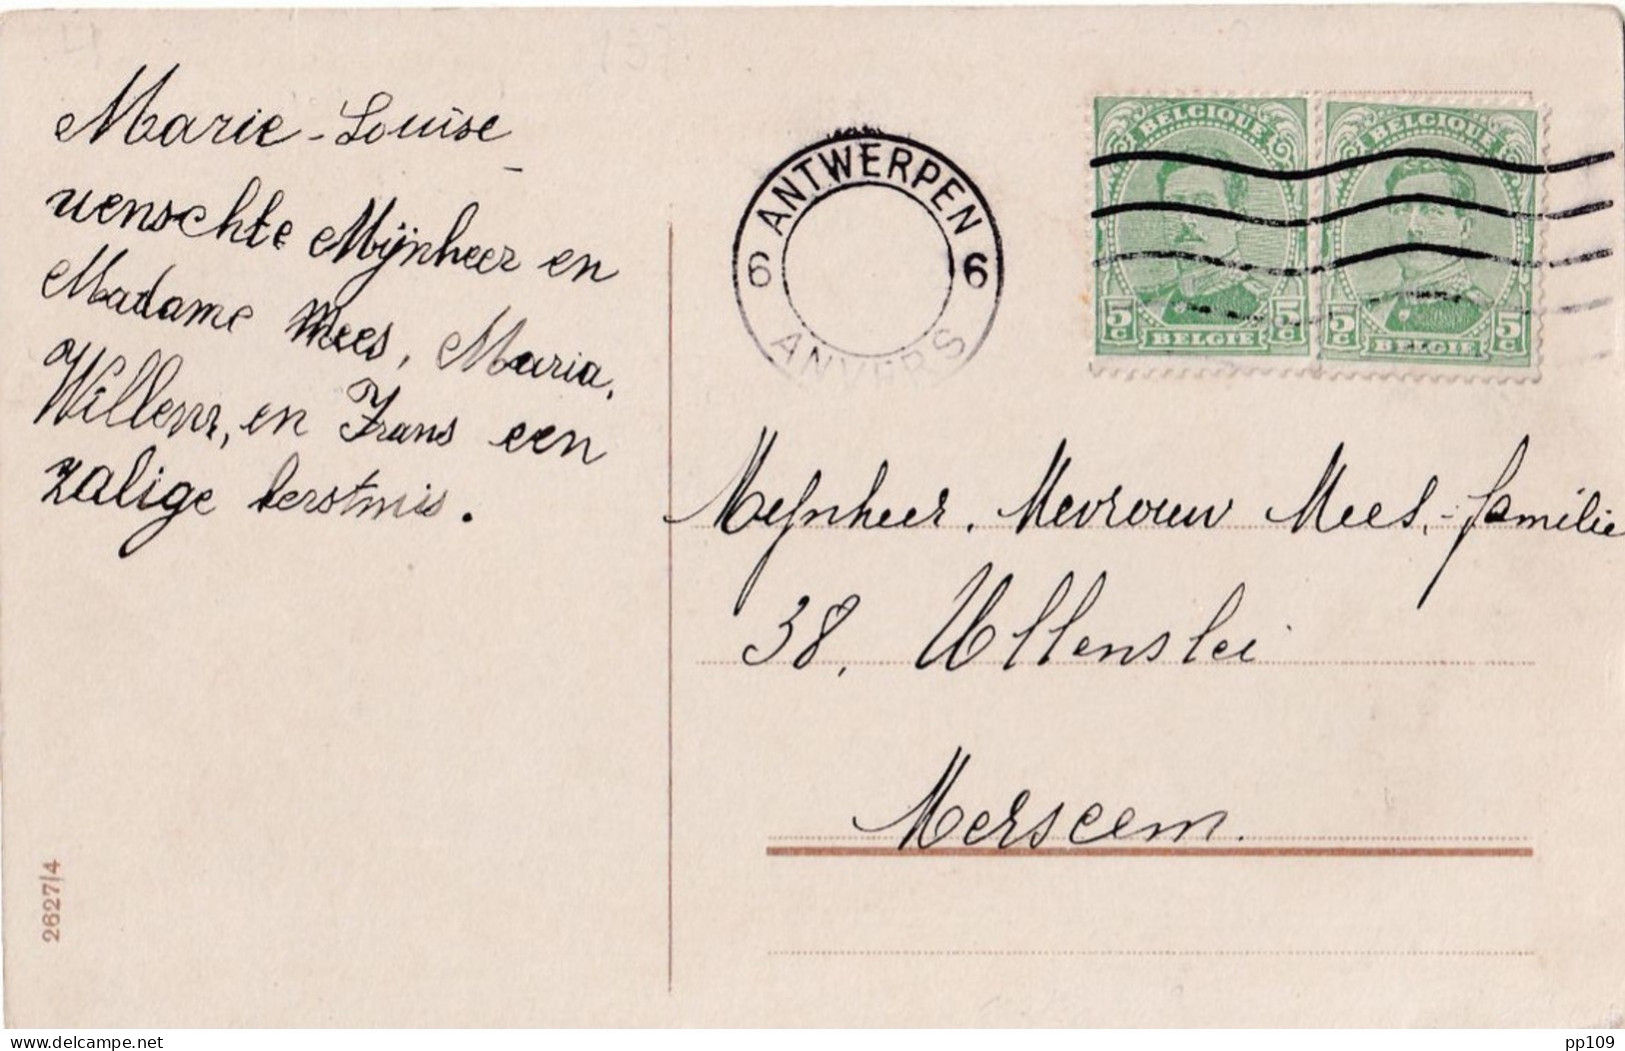 Marie-Louise
wenschte Mijnheer en
Madame Mees, Maria,
Willem, en Frans een
zalige kerstmis.
2627/4
ANTWERPEN
6 6
ANVERS
BELGIQUE
5c 5c
BELGIË
BELGIQUE
5c 5c
BELGIË
Mijnheer, Mevrouw Mees,-familie
38, Ullenslei
Merxeem.
delcampe.net
pp109